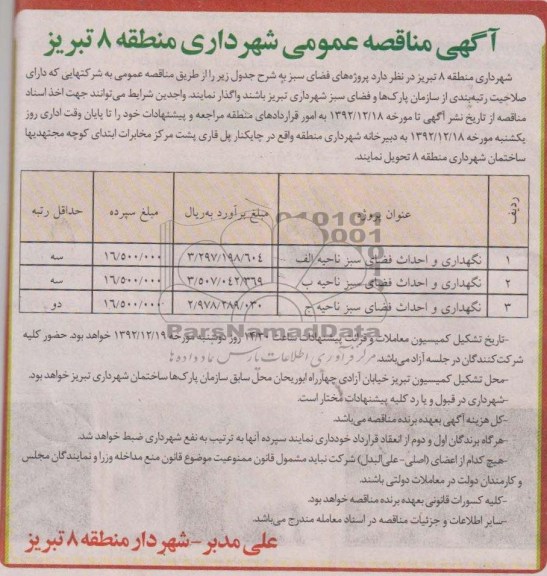 آگهی مناقصه عمومی شهرداری منطقه ۸ تبریز
شهرداری منطقه ۸ تبریز در نظر دارد پروژه‌های فضای سبز به شرح جدول زیر را از طریق مناقصه عمومی به شرکتهایی که دارای
صلاحیت رتبه‌بندی از سازمان پارک‌ها و فضای سبز شهرداری تبریز باشند واگذار نمایند. واجدین شرایط می‌توانند جهت اخذ اسناد
مناقصه از تاریخ نشر آگهی تا مورخه ۱۳۹۲/۱۲/۱۸ به امور قراردادهای منطقه مراجعه و پیشنهادات خود را تا پایان وقت اداری روز
یکشنبه مورخه ۱۳۹۲/۱۲/۱۸ به دبیرخانه شهرداری منطقه واقع در چایکنار پل قاری پشت مرکز مخابرات ابتدای کوچه مجتهدیها
ساختمان شهرداری منطقه ۸ تحویل نمایند.
ردیف عنوان پروژه مبلغ برآورد به‌ریال مبلغ سپرده حداقل رتبه
۱ نگهداری و احداث فضای سبز ناحیه الف ۳/۲۹۷/۱۹۸/۶۰۴ ۱۶/۵۰۰/۰۰۰ سه
۲ نگهداری و احداث فضای سبز ناحیه ب ۳/۵۰۷/۰۴۲/۳۶۹ ۱۶/۵۰۰/۰۰۰ سه
۳ نگهداری و احداث فضای سبز ناحیه ج ۲/۹۷۸/۲۸۹/۰۳۰ ۱۶/۵۰۰/۰۰۰ دو
ParsNamadData
-تاریخ تشکیل کمیسیون معاملات و قرائت پیشنهادات ساعت روز دوشنبه مورخه ۱۳۹۲/۱۲/۱۹ خواهد بود. حضور کلیه
شرکت‌کنندگان در جلسه آزاد می‌باشد.
-محل تشکیل کمیسیون تبریز خیابان آزادی چهارراه ابوریحان محل سابق سازمان پارک‌ها ساختمان شهرداری تبریز خواهد بود.
-شهرداری در قبول و یا رد کلیه پیشنهادات مختار است.
-کل هزینه آگهی بعهده برنده مناقصه می‌باشد.
-هرگاه برندگان اول و دوم از انعقاد قرارداد خودداری نمایند سپرده آنها به ترتیب به نفع شهرداری ضبط خواهد شد.
-هیچ کدام از اعضای (اصلی-علی‌البدل) شرکت نباید مشمول قانون ممنوعیت موضوع قانون منع مداخله وزرا و نمایندگان مجلس
و کارمندان دولت در معاملات دولتی باشند.
-کلیه کسورات قانونی بعهده برنده مناقصه خواهد بود.
-سایر اطلاعات و جزئیات مناقصه در اسناد معامله مندرج می‌باشد.
علی مدبر-شهردار منطقه ۸ تبریز